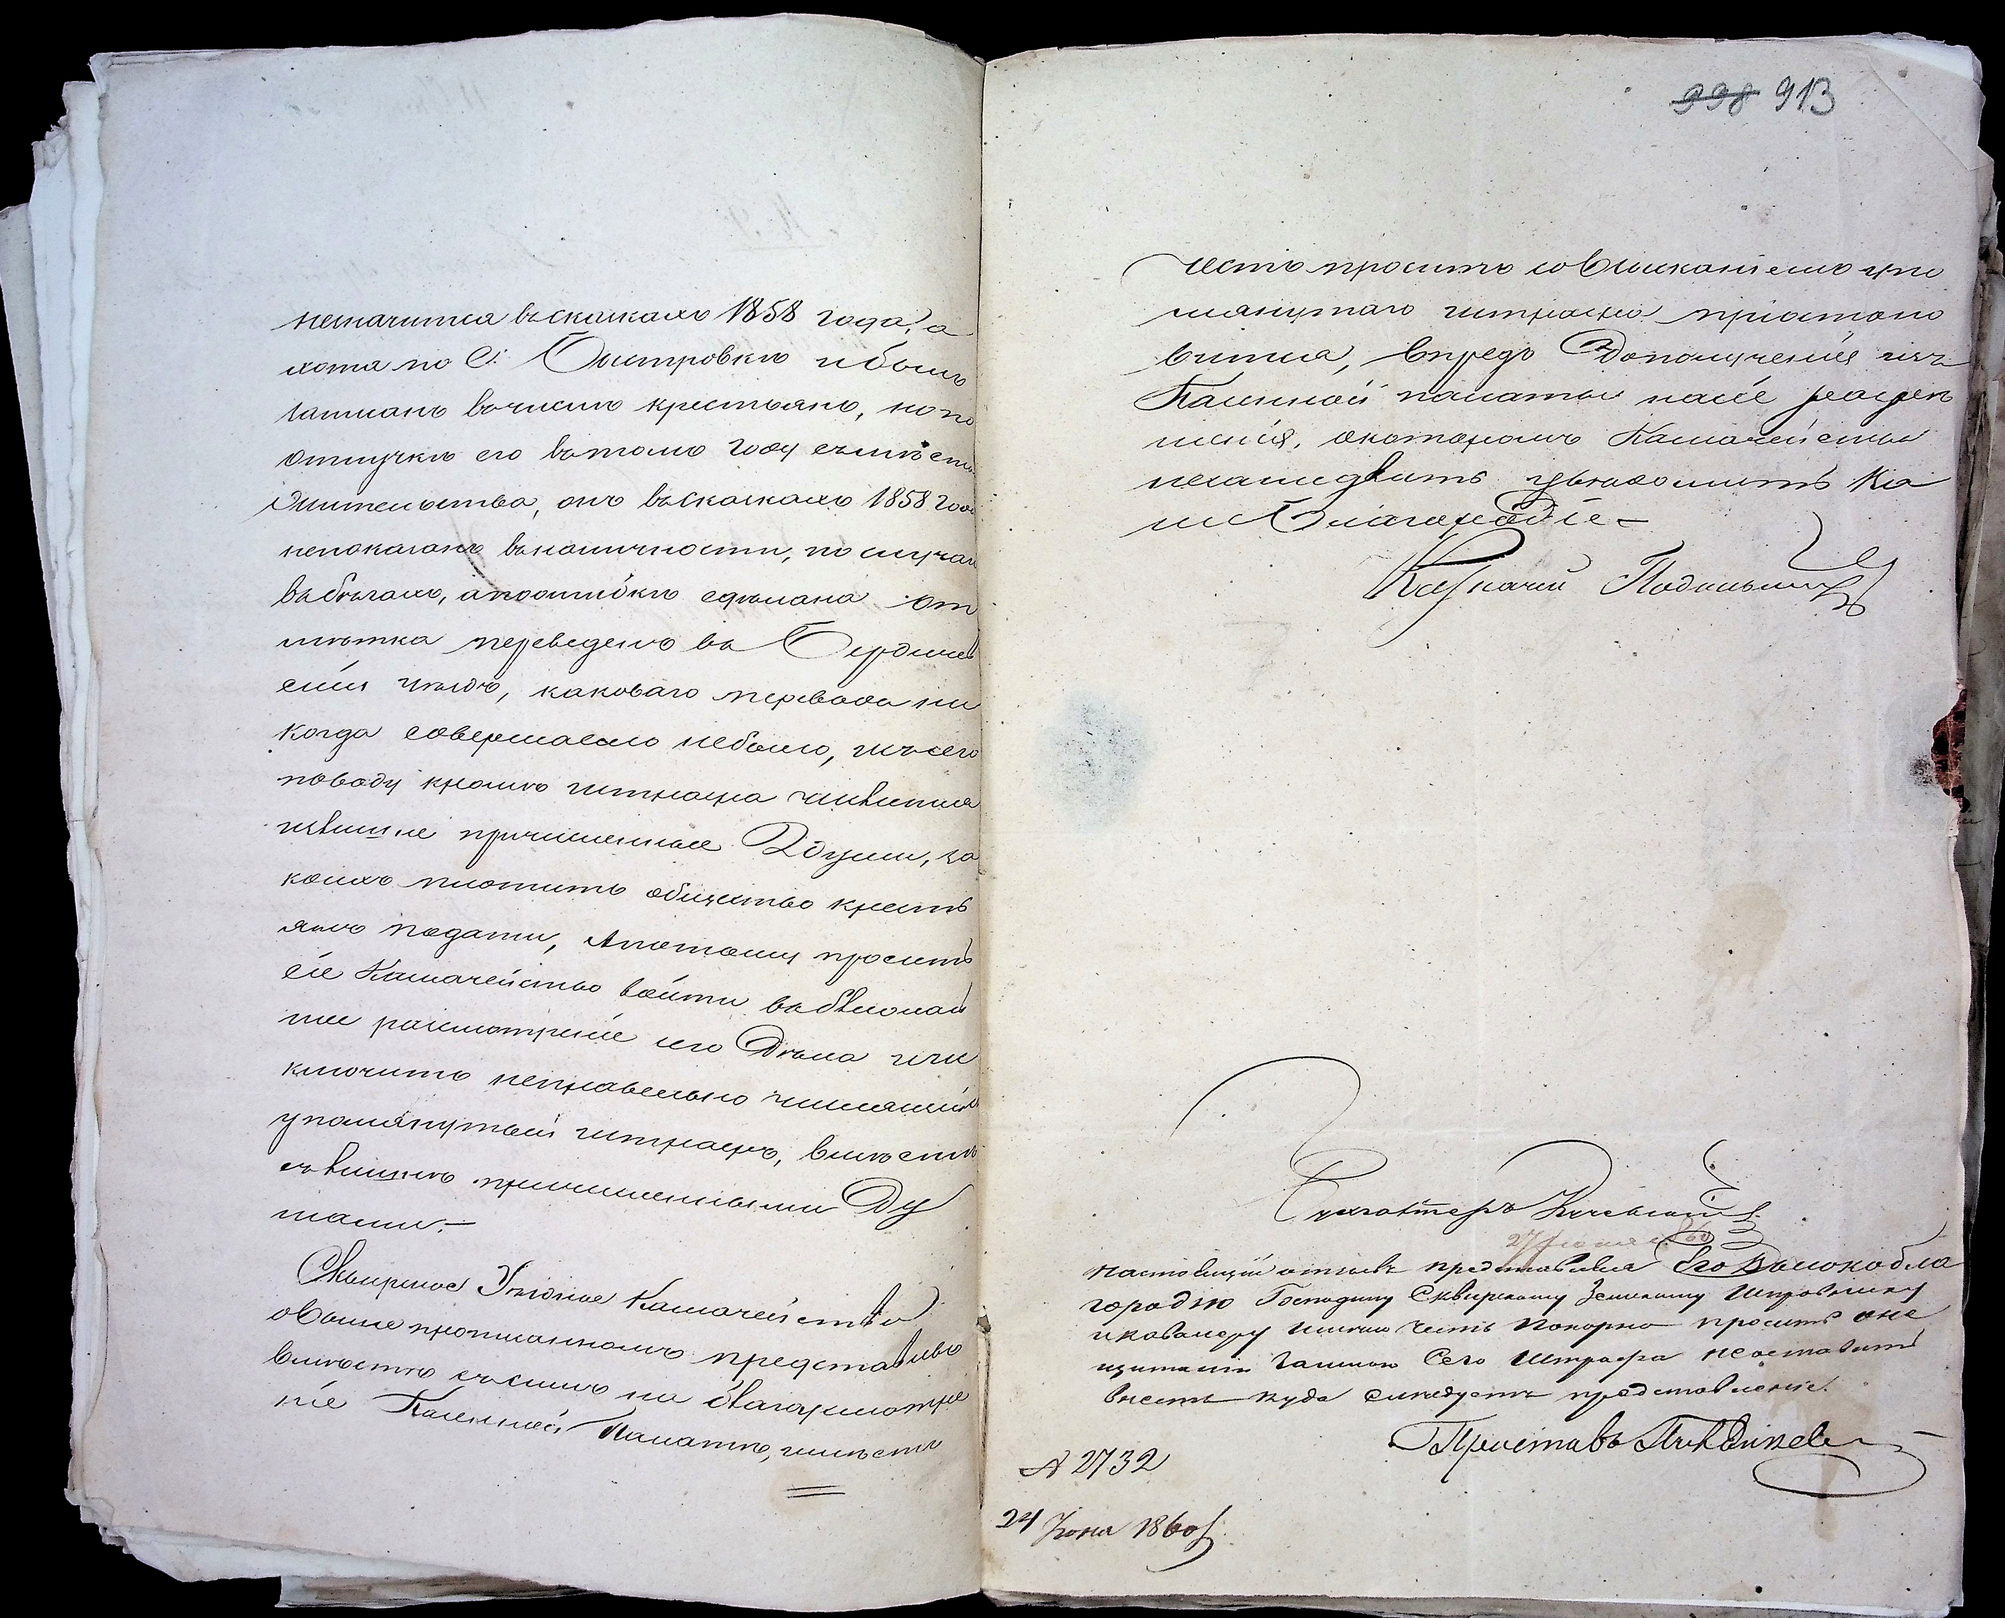 незначится въ сказкахъ 1858 года, а
хотя по С: Быстровкѣ и былъ
записанъ въ числѣ крестьянъ, но по
отлучкѣ его въ томъ году съ мѣста
жительства, онъ въ сказкахъ 1858 года
непоказанъ въ наличности, по случаю
въ бѣгахъ, а по ошибкѣ сдѣлана от
мѣтка переведенъ въ Бердичев
скій уѣздъ, каковаго перевода ни
когда совершаемо небыло, и съ сего
поводу кромѣ штрафа числится
излишне причисленные 2 души, за
коихъ плотитъ общество кресть
янъ подати, а потому проситъ
сіе Казначейство войти въ
шее разсмотреніе сего Дѣла и ис
ключить неправельно числящійся
упомянутый штрафъ, вмѣстѣ
съ причисленными Ду
шами.—
Сквирское Уѣздное Казначейство
о выше прописанномъ представивъ
вмѣстѣ съ симъ на благоусмотре
ніе Казенной Палаты, имѣетъ
998 913
честь просить со взысканіемъ упо
мянутаго штрафа пріостано
витися, впредь до полученія изъ
Казенной палаты на сіе разреш
шенія, о котораомъ Казначейство
незамедлитъ увѣдомить Ва
ше Благородіе —
Казначей
Бухгалтеръ
27 Іюня 860
настоящій отзывъ представляя Его Высокобла
городію Господину Сквирскому Земскому Исправнику
и кавалеру имѣю честь покорно просить о не
щитаніи за мною Сего Штрафа неоставить
внесть куда слѣдуетъ представленіе.
Приставъ
№ 2732
24 Іюня 1860 г.